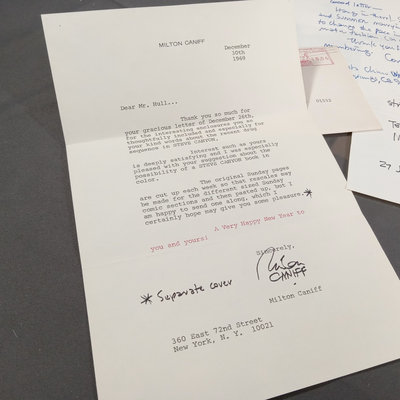 MILTON CANIFF
December
30th
1969
Dear Mr. Hull...
Thank you so much for
your gracious letter of December 26th,
for the interesting enclosures you so
thoughtfully included and especially for
your kind words about the recent drug
sequence in STEVE CANYON.
Interest such as yours
is deeply satisfying and I was especially
pleased with your suggestion about the
possibility of a STEVE CANYON book in
color.
The original Sunday pages
are cut up each week so that rescales may
be made for the different sized Sunday
comic sections and then pasted up, but I
am happy to send one along, which I
certainly hope may give you some pleasure.*
A Very Happy New Year to
you and yours!
Sincerely,
Milton
CANIFF
* Suparate cover
Milton Caniff
360 East 72nd Street
New York, N. Y. 10021
Thank you